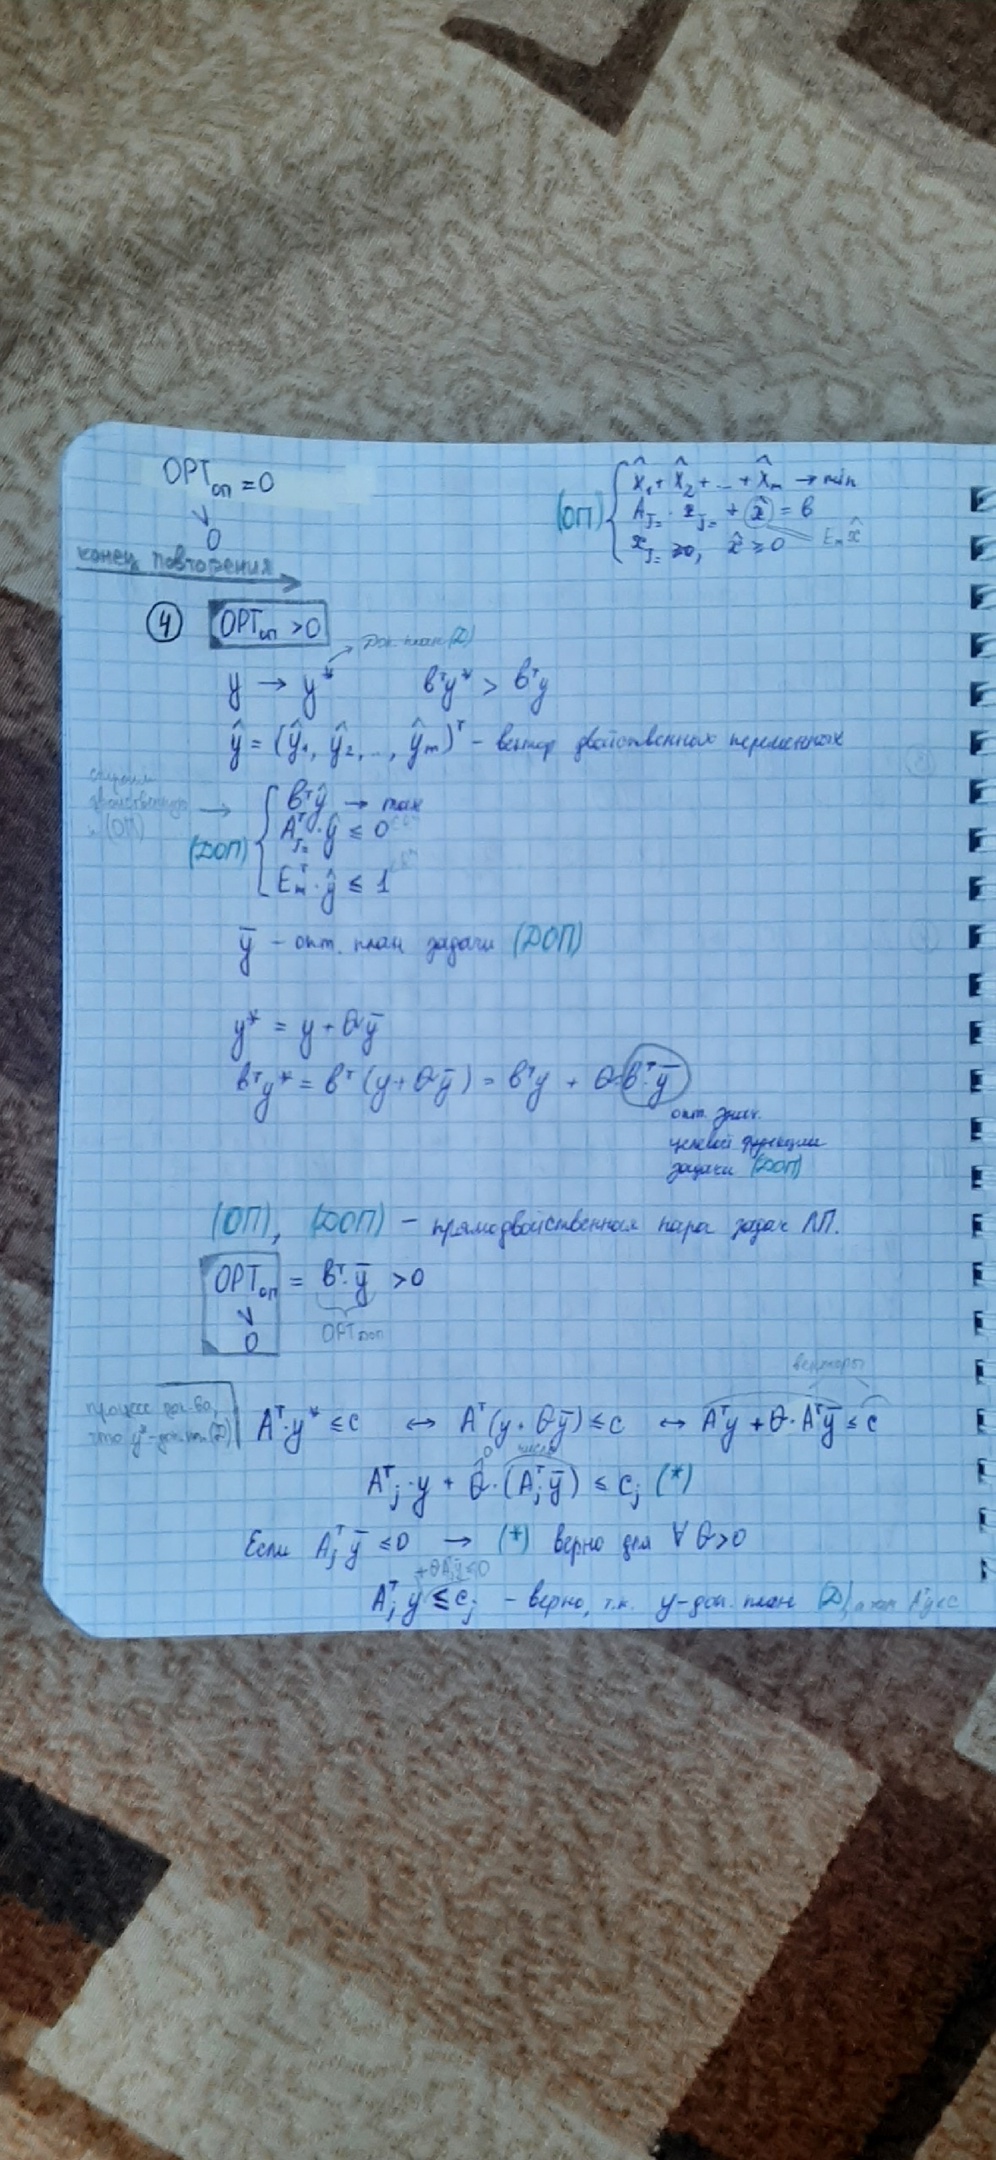 OPTоп = 0
∨
0
конец повторения
(ОП) { x̂₁ + x̂₂ + ... + x̂ₘ → min
A_J= · x_J= + x̂ = b
Eₘx̂
x_J= ≥ 0, x̂ ≥ 0
④ OPTоп > 0
доп. план (Д)
y → y* bᵀy* > bᵀy
ŷ = (ŷ₁, ŷ₂, ..., ŷₘ)ᵀ – вектор двойственных переменных
строим
двойственную
к (ОП)
→ (ДОП) { bᵀŷ → max
Aᵀ_J= · ŷ ≤ 0
Eₘᵀ · ŷ ≤ 1
ȳ – опт. план задачи (ДОП)
y* = y + θȳ
bᵀy* = bᵀ(y + θȳ) = bᵀy + θ·bᵀ·ȳ
опт. знач.
целевой функции
задачи (ДОП)
(ОП), (ДОП) – прямодвойственная пара задач ЛП.
OPTоп = bᵀ·ȳ > 0
∨
0
OPTдоп
векторы
процесс док-ва,
что y*-доп.пл (Д)
Aᵀ·y* ≤ c ↔ Aᵀ(y + θȳ) ≤ c ↔ Aᵀy + θ·Aᵀȳ ≤ c
0 число
Aᵀⱼ·y + θ·(Aⱼᵀȳ) ≤ cⱼ (*)
Если Aⱼᵀȳ ≤ 0 → (*) верно для ∀ θ>0
+θAⱼᵀȳ≤0
Aᵀⱼ y ≤ cⱼ – верно, т.к. y-доп. план (Д), а там Aᵀy≤c